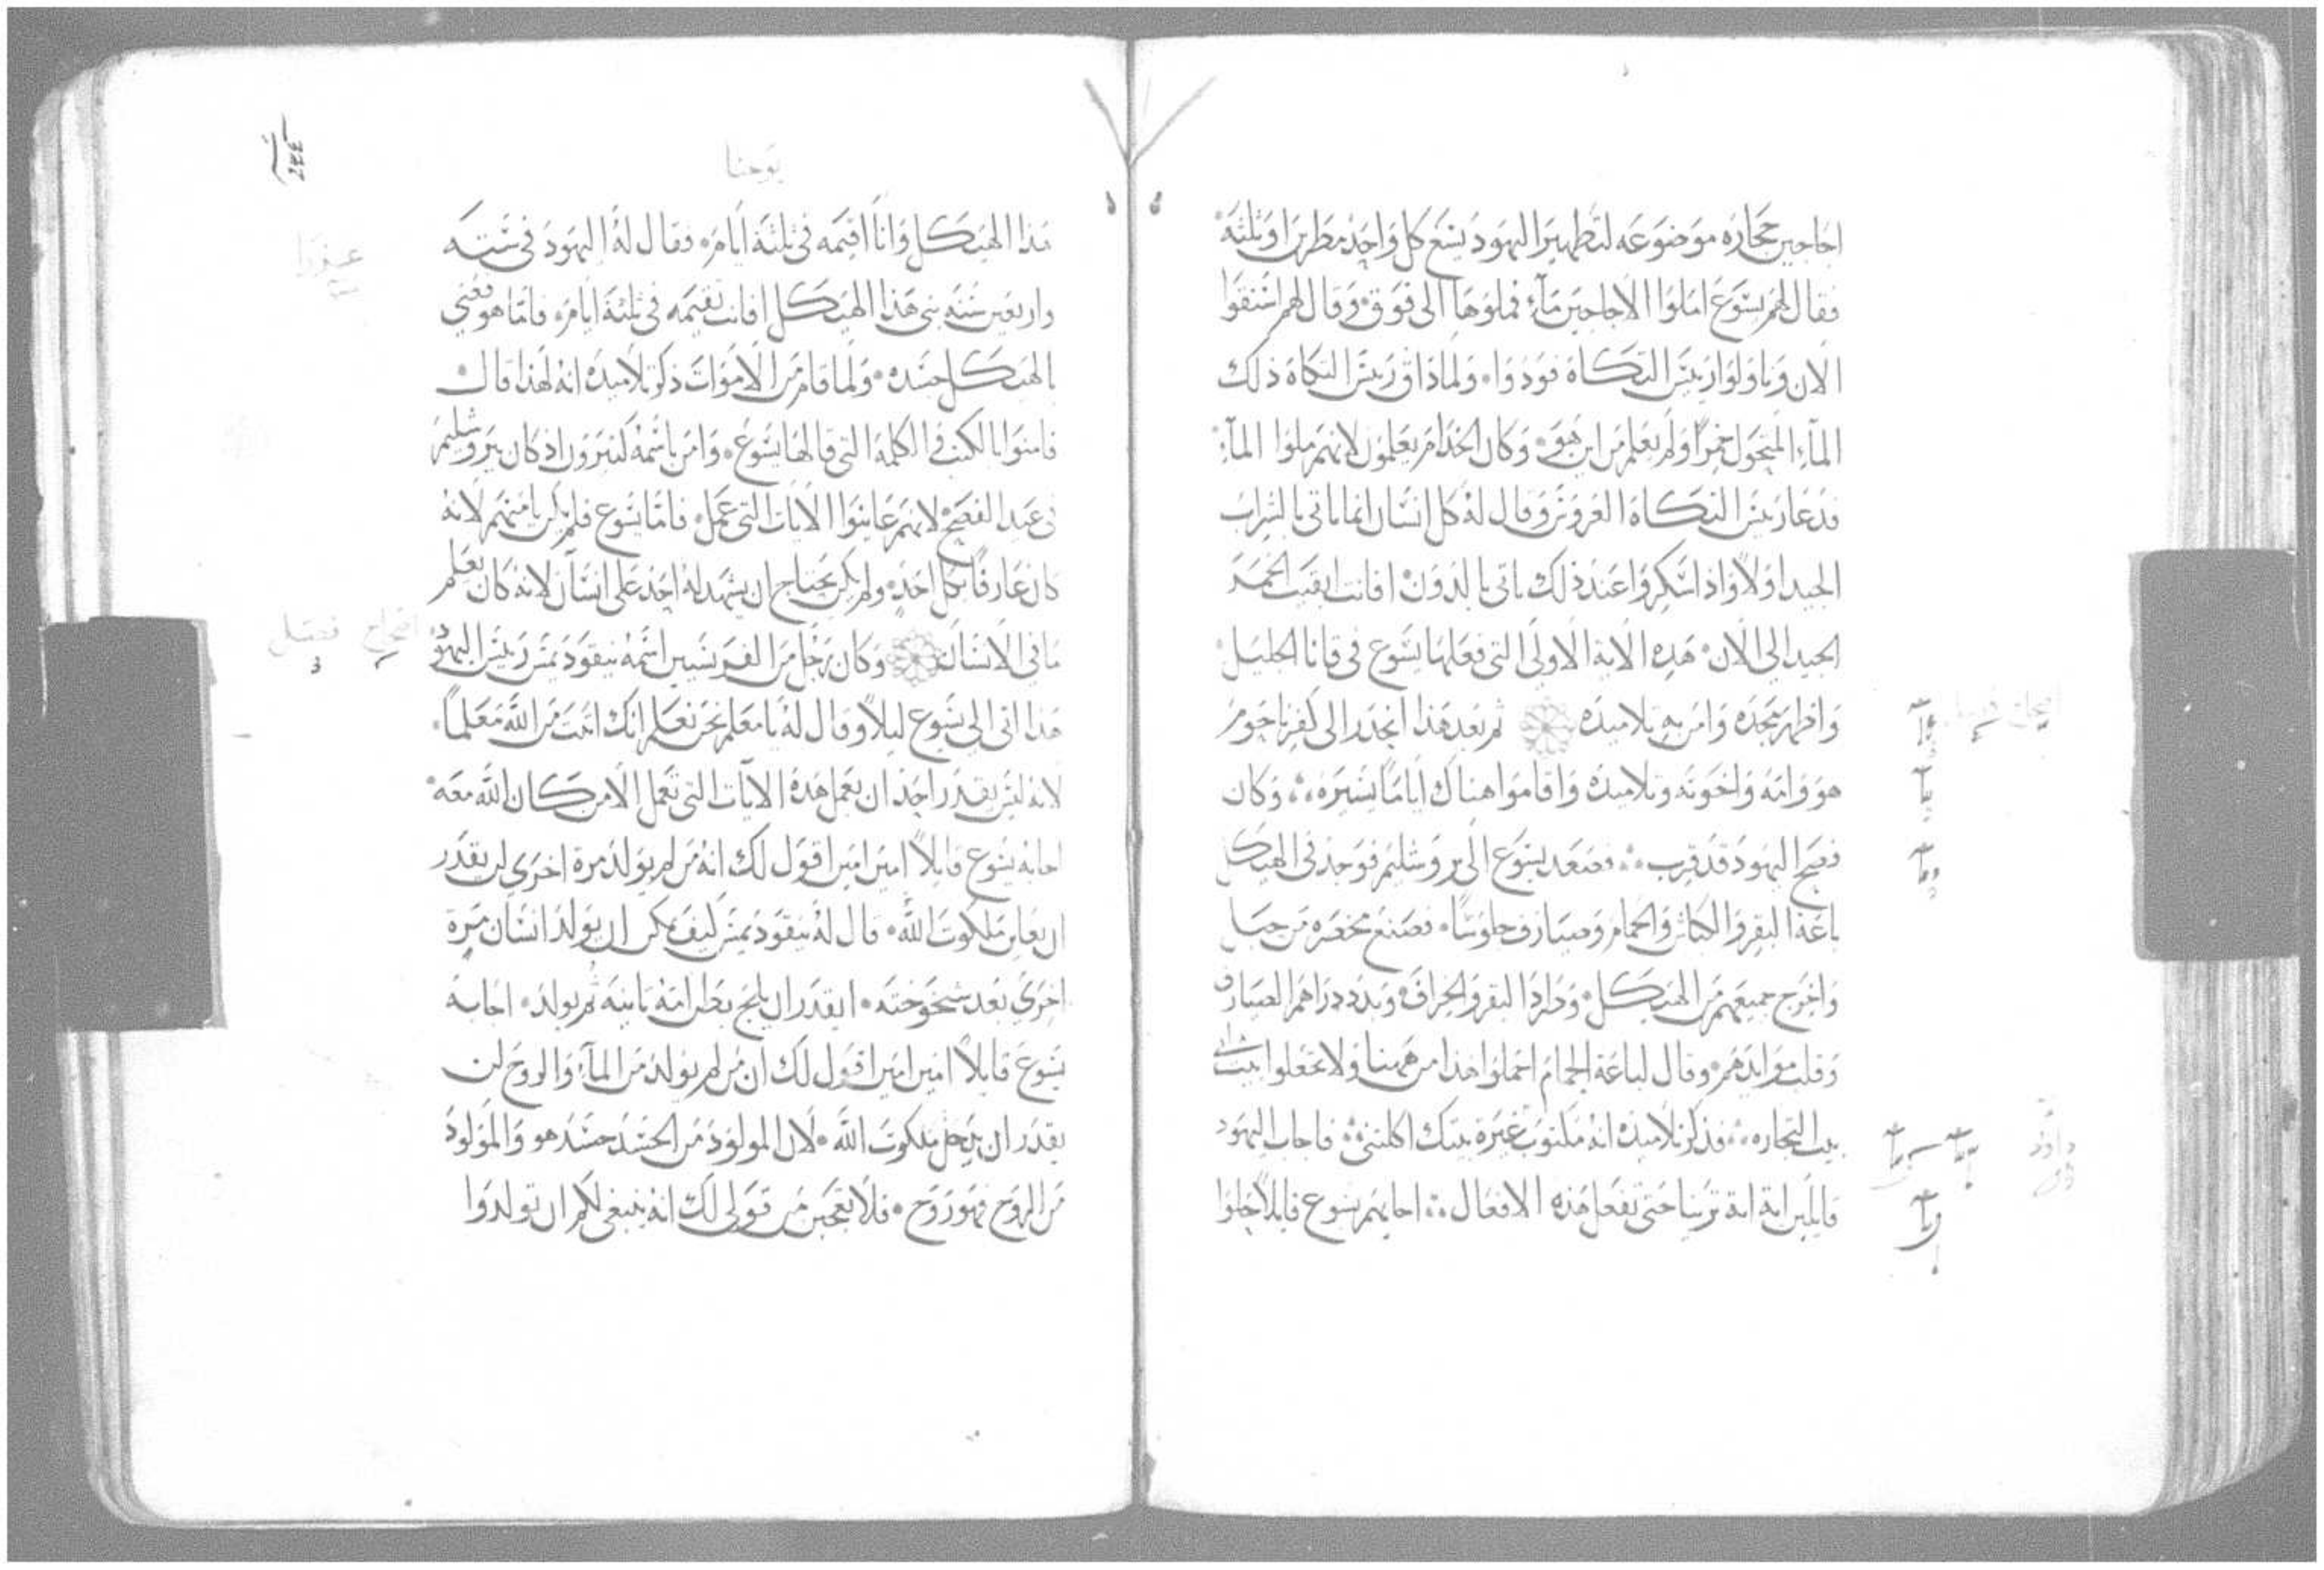 اجاجين حجاره موضوعه لتطهير اليهود يسع كل واحد مطرين او ثلثة
فقال لهم يسوع املوا الاجاجين مآء فملوها الى فوق وقال لهم استقوا
الان وناولوا رييس التكاة فودوا ولما ذاق رييس التكاة ذلك
المآء المتحول خمرا ولم يعلم من اين هو وكان الخدام يعلمون لانهم ملوا المآء
فدعا رييس التكاة العروس وقال له كل انسان انما ياتي بالشراب
الجيد اولا واذا سكروا عند ذلك ياتي بالدون افانت ابقيت الخمر
الجيد الي الان هذه الاية الاولى التي فعلها يسوع في قانا الجليل
واظهر مجده وامن به تلاميذه ثم بعد هذا انحدر الى كفرناحوم
هو وامه واخوته وتلاميذه واقاموا هناك اياما يسيره وكان
فصح اليهود قد قرب فصعد يسوع الى يروشليم فوجد في الهيكل
باعة البقر والكباش والحمام وصيارف جلوسا فصنع مخصره من حبل
واخرج جميعهم من الهيكل وطرد البقر والخراف وبدد دراهم الصيارف
وقلب موايدهم وقال لباعة الحمام احملوا هذا من ههنا ولا تجعلوا بيت ابي
بيت التجاره فذكر تلاميذه انه مكتوب غيرة بيتك اكلتني فاجاب اليهود
قايلين اية اية ترينا حتى تفعل هذه الافعال اجابهم يسوع قايلا حلوا
يوحنا
هذا الهيكل وانا اقيمه في ثلثة ايام فقال له اليهود في ستة
واربعين سنه بني هذا الهيكل افانت تقيمه في ثلثة ايام فاما هو فعني
بالهيكل جسده ولما قام من الاموات ذكر تلاميذه انه لهذا قال
فامنوا بالكتب والكلمة التي قالها يسوع وامن باسمه كثيرون اذ كان بيروشليم
في عيد الفصح لانهم عاينوا الايات التي عمل فاما يسوع فلم يكن يامنهم لانه
كان عارفا بكل احد ولم يكن يحتاج ان يشهد له احد على انسان لانه كان يعلم
ما في الانسان وكان رجل من الفريسيين اسمه نيقوديمس رييس اليهود
هذا اتى الى يسوع ليلا وقال له يا معلم نحن نعلم انك اتيت من الله معلما
لانه ليس يقدر احد ان يعمل هذه الايات التي تعمل الا من كان الله معه
اجابه يسوع قايلا امين امين اقول لك انه من لم يولد مرة اخرى لن يقدر
ان يعاين ملكوت الله قال له نيقوديمس كيف يمكن ان يولد انسان مرة
اخرى بعد شيخوخته ايقدر ان يلج بطن امه ثانية ثم يولد اجابه
يسوع قايلا امين امين اقول لك ان من لم يولد من المآء والروح لن
يقدر ان يدخل ملكوت الله لان المولود من الجسد جسد هو والمولود
من الروح فهو روح فلا تعجبن من قولى لك انه ينبغي لكم ان تولدوا